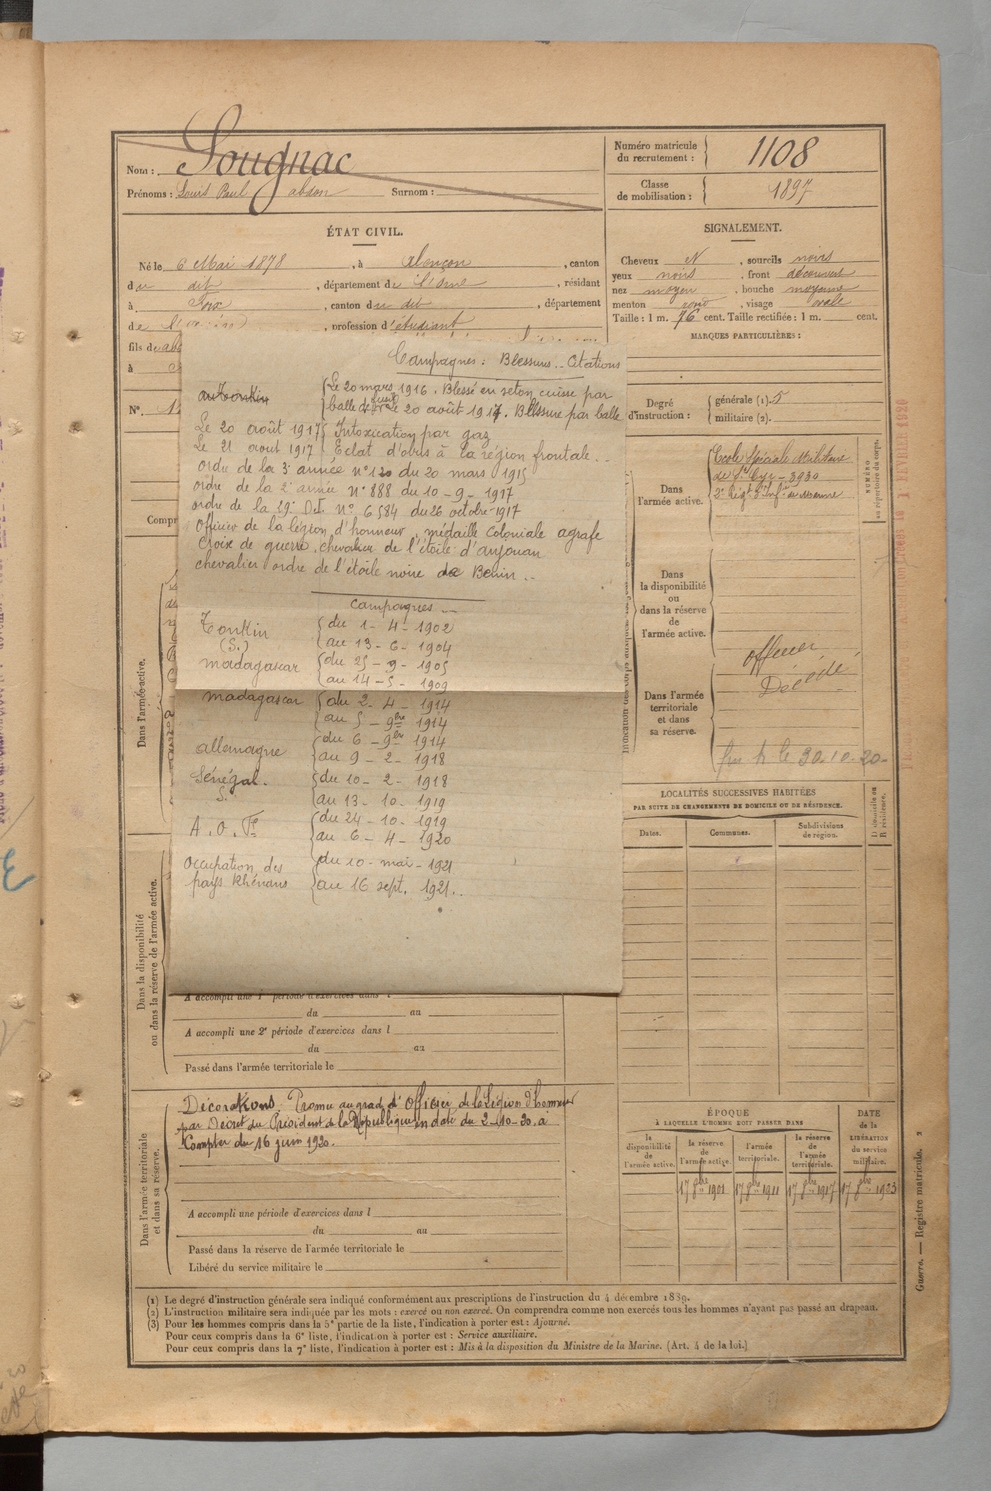 Nom : Sougnac
Prénoms : Louis Paul abson Surnom :
Numéro matricule du recrutement : 1108
Classe de mobilisation : 1897
ÉTAT CIVIL.
Né le 6 Mai 1878, à Alençon, canton
du dit, département de l'Orne, résidant
à Foix, canton du dit, département
de l', profession d'étudiant
fils de
à
N°
SIGNALEMENT.
Cheveux N, sourcils noirs
yeux noirs, front découvert
nez moyen, bouche moyenne
menton rond, visage ovale
Taille : 1 m. 76 cent. Taille rectifiée : 1 m. cent.
MARQUES PARTICULIÈRES :
Degré d'instruction : générale (1). 5
militaire (2).
Campagnes : Blessures.. Citations
au Tonkin
Le 20 mars 1916. Blessé en seton cuisse par
balle de Le 20 août 1917. Blessure par balle
Le 20 août 1917 Intoxication par gaz
Le 21 aout 1917 Eclat d'obus à la région frontale.
ordre de la 3e année N° 120 du 20 mars 1915
ordre de la 2e année N° 888 du 10-9-1917
ordre de la 59e Don N° 6584 du 26 octobre 1917
Officier de la légion d'honneur, médaille Coloniale agrafe
Croix de guerre, chevalier de l'étoile d'anjouan
chevalier ordre de l'étoile noire de Benin..
Campagnes
Tonkin (S.) du 1-4-1902
au 13-6-1904
madagascar du 25-9-1905
au 14-5-1909
madagascar du 2-4-1914
au 5-9bre 1914
allemagne du 6-9bre 1914
au 9-2-1918
Sénégal. S. du 10-2-1918
au 13-10-1919
A.O.Fse du 24-10-1919
au 6-4-1920
Occupation des du 10-mai-1921
pays Rhénans au 16 sept. 1921..
Compr
Dans l'armée active.
Dans l'armée active.
Ecole Spéciale Militaire
de St Cyr - 3930
2e Régt d'Infie de marine
NUMÉRO au répertoire du corps.
Dans la disponibilité ou dans la réserve de l'armée active.
Dans l'armée territoriale et dans sa réserve.
officier
Décédé
le 30-10-20-
LOCALITÉS SUCCESSIVES HABITÉES
PAR SUITE DE CHANGEMENTS DE DOMICILE OU DE RÉSIDENCE.
Dates. Communes. Subdivisions de région. D domicile ou R résidence.
Dans la disponibilité ou dans la réserve de l'armée active.
A accompli une 1re période d'exercices dans l
du au
A accompli une 2e période d'exercices dans l
du au
Passé dans l'armée territoriale le
Dans l'armée territoriale et dans sa réserve.
Décorations. Promu au grade d'Officier de la Légion d'honneur
par Décret du Président de la République en date du 2-10-20 à
compter du 16 juin 1920.
A accompli une période d'exercices dans l
du au
Passé dans la réserve de l'armée territoriale le
Libéré du service militaire le
ÉPOQUE
À LAQUELLE L'HOMME DOIT PASSER DANS
la disponibilité de l'armée active.
la réserve de l'armée active.
l'armée territoriale.
la réserve de l'armée territoriale.
DATE de la LIBÉRATION du service militaire.
17 8bre 1901 17 8bre 1911 17 8bre 1917 17 8bre 1923
(1) Le degré d'instruction générale sera indiqué conformément aux prescriptions de l'instruction du 4 décembre 1889.
(2) L'instruction militaire sera indiquée par les mots : exercé ou non exercé. On comprendra comme non exercés tous les hommes n'ayant pas passé au drapeau.
(3) Pour les hommes compris dans la 5e partie de la liste, l'indication à porter est : Ajourné.
Pour ceux compris dans la 6e liste, l'indication à porter est : Service auxiliaire.
Pour ceux compris dans la 7e liste, l'indication à porter est : Mis à la disposition du Ministre de la Marine. (Art. 4 de la loi.)
Guerre. — Registre matricule. 2